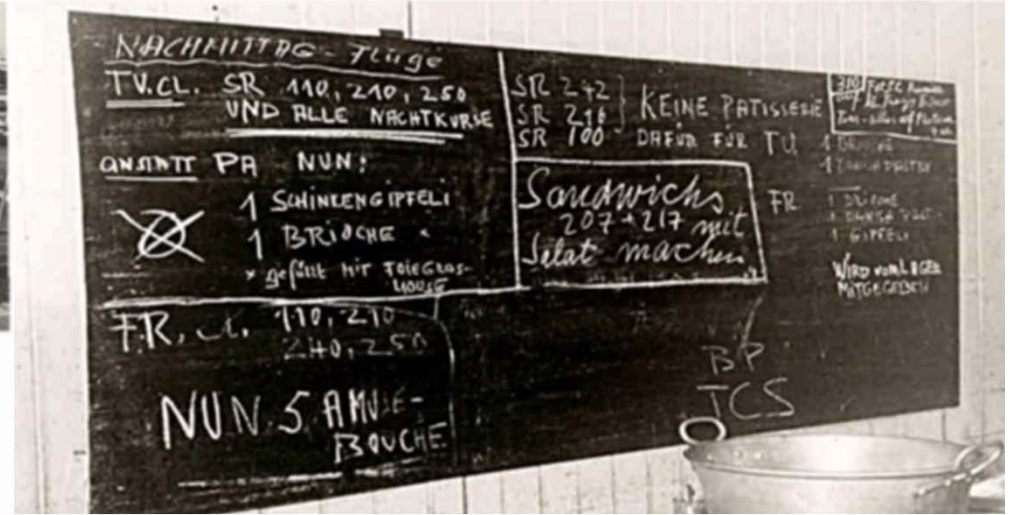 NACHMITTAG - Flüge
TV.CL. SR 110, 210, 250
UND ALLE NACHTKURSE
ANSTATT PA NUN:
1 SCHINKENGIPFELI
1 BRIOCHE "
* gefüllt MIT FOIEGRAS-
MOUSE
F.R. CL. 110, 210
240, 250
NUN 5 AMUSE-
BOUCHE
SR 242
SR 216
SR 100
KEINE PATISSERIE
DAFÜR FÜR TU
Sandwichs
207 + 217 mit
Salat machen
1 BRIOCHE
FR
1 BRIOCHE
1 GIPFELI
WIRD VOM LAGER
MITGEGEBEN
BP
TCS